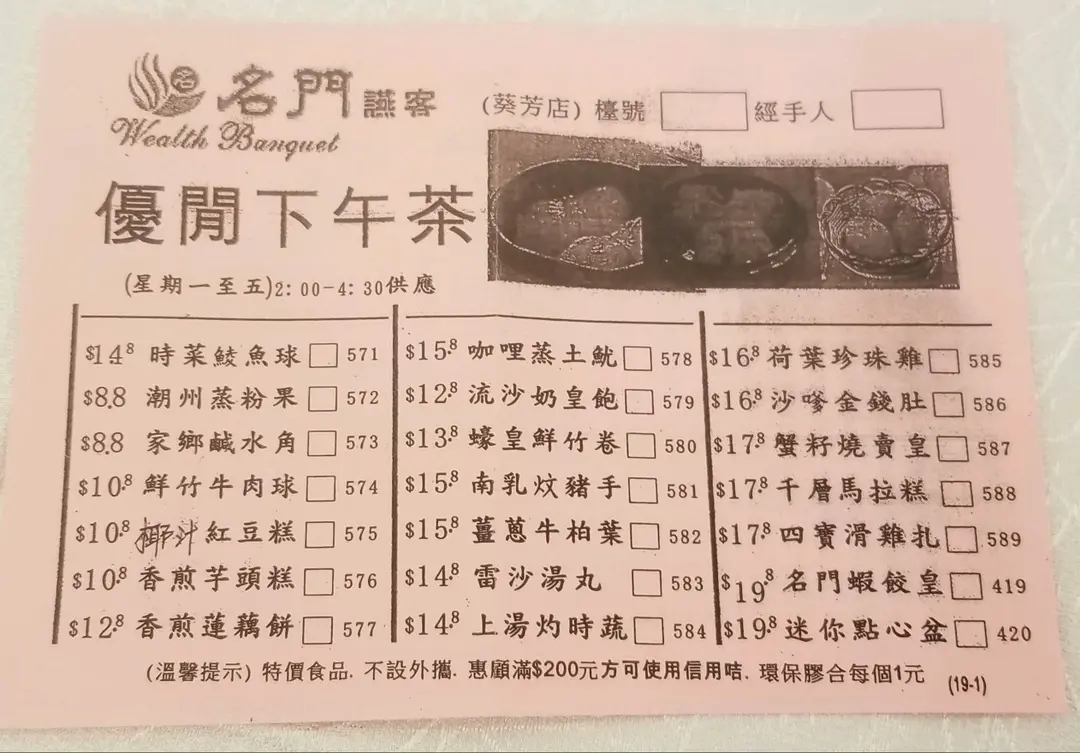 名門讌客 (葵芳店) 檯號 經手人
名
Wealth Banquet
優閒下午茶
(星期一至五)2:00-4:30供應
$14.8 時菜鯪魚球 571
$8.8 潮州蒸粉果 572
$8.8 家鄉鹹水角 573
$10.8 鮮竹牛肉球 574
$10.8 椰汁紅豆糕 575
$10.8 香煎芋頭糕 576
$12.8 香煎蓮藕餅 577
$15.8 咖哩蒸土魷 578
$12.8 流沙奶皇飽 579
$13.8 蠔皇鮮竹卷 580
$15.8 南乳炆豬手 581
$15.8 薑蔥牛柏葉 582
$14.8 雷沙湯丸 583
$14.8 上湯灼時蔬 584
$16.8 荷葉珍珠雞 585
$16.8 沙嗲金錢肚 586
$17.8 蟹籽燒賣皇 587
$17.8 千層馬拉糕 588
$17.8 四寶滑雞扎 589
$19.8 名門蝦餃皇 419
$19.8 迷你點心盆 420
(溫馨提示) 特價食品. 不設外攜. 惠顧滿$200元方可使用信用咭. 環保膠合每個1元
(19-1)